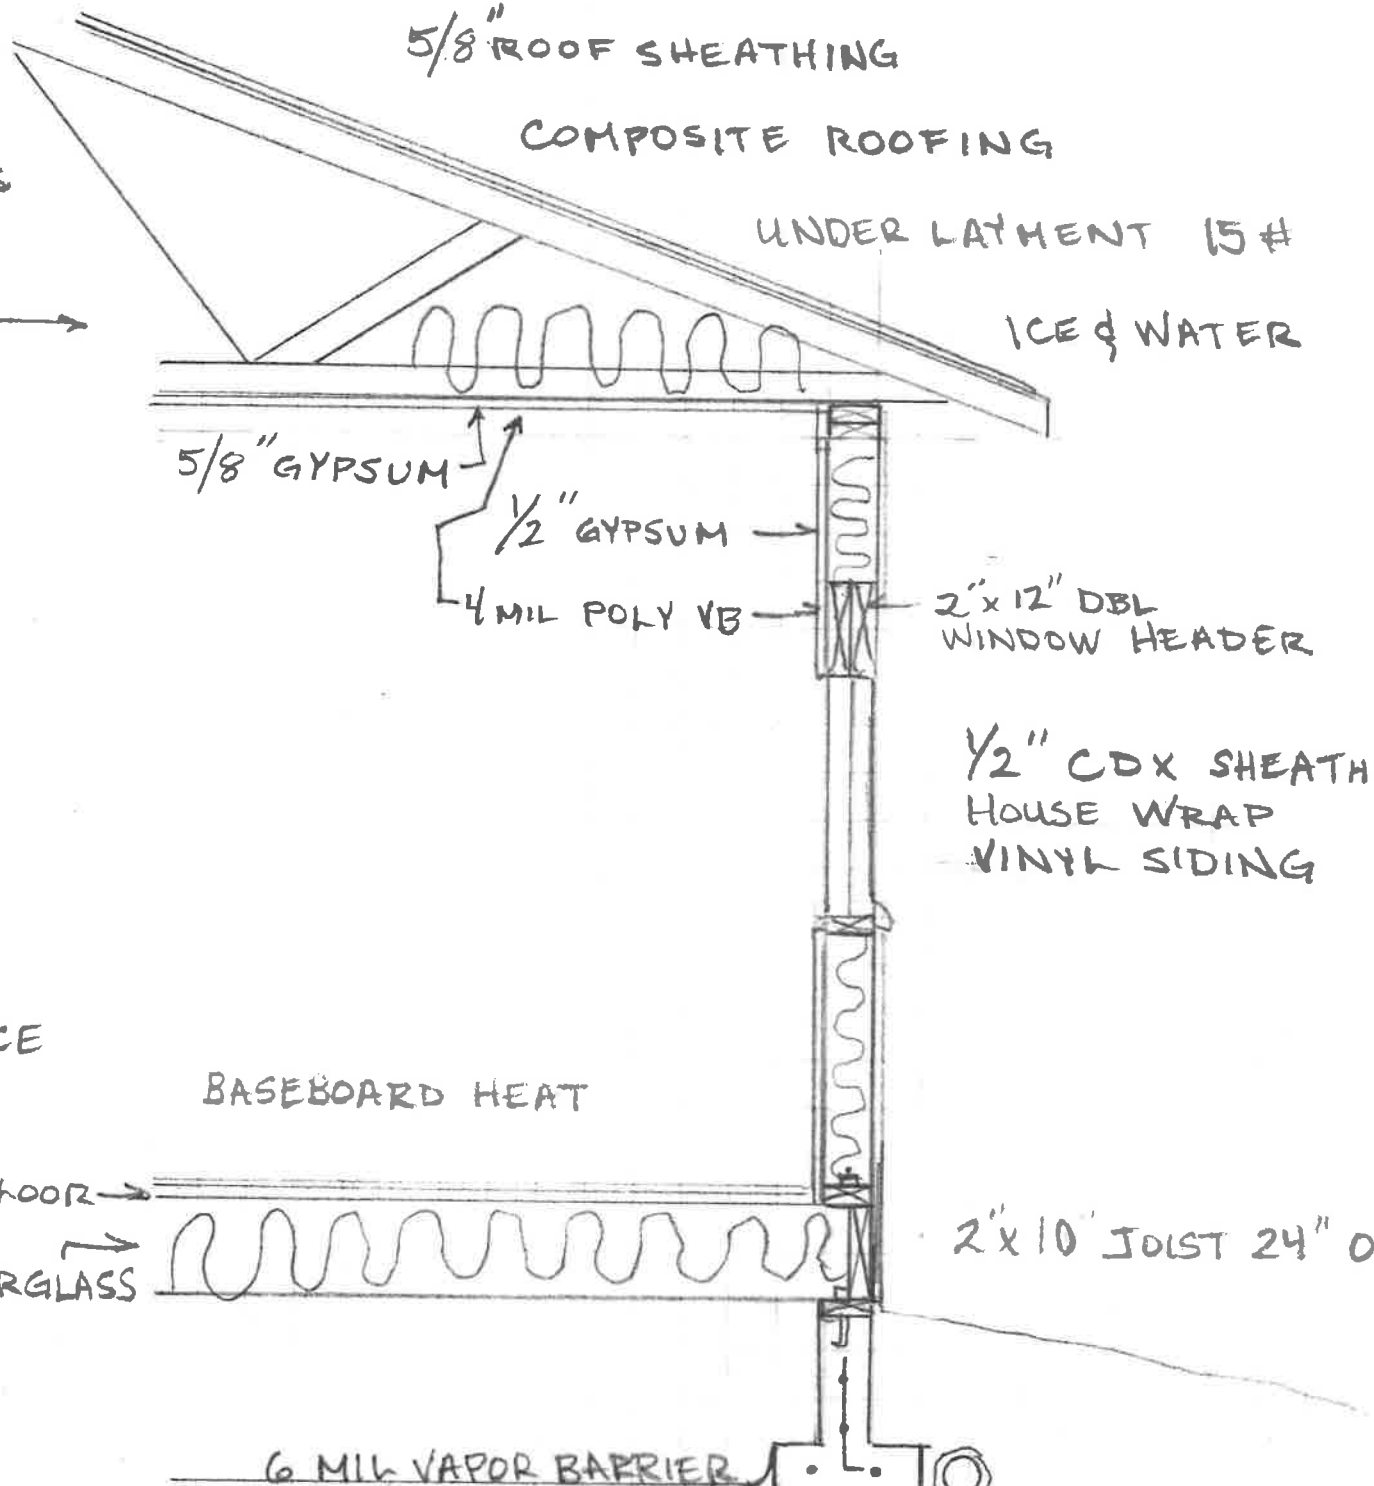 5/8" ROOF SHEATHING
COMPOSITE ROOFING
UNDER LAYMENT 15#
ICE & WATER
5/8" GYPSUM
1/2" GYPSUM
4 MIL POLY VB
2"x12" DBL
WINDOW HEADER
1/2" CDX SHEATH
HOUSE WRAP
VINYL SIDING
CE
BASEBOARD HEAT
LOOR
2"x10' JOIST 24" O
RGLASS
6 MIL VAPOR BARRIER